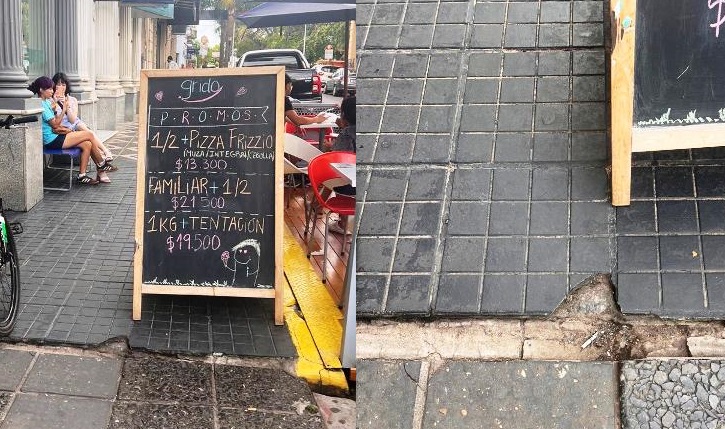 grido
P·R·O·M·O·S
1/2+PIZZA FRIZZIO
(MUZA/INTEGRAL/CEBOLLA)
$13.300
FAMILIAR+1/2
$21500
1KG+TENTACIÓN
$19.500